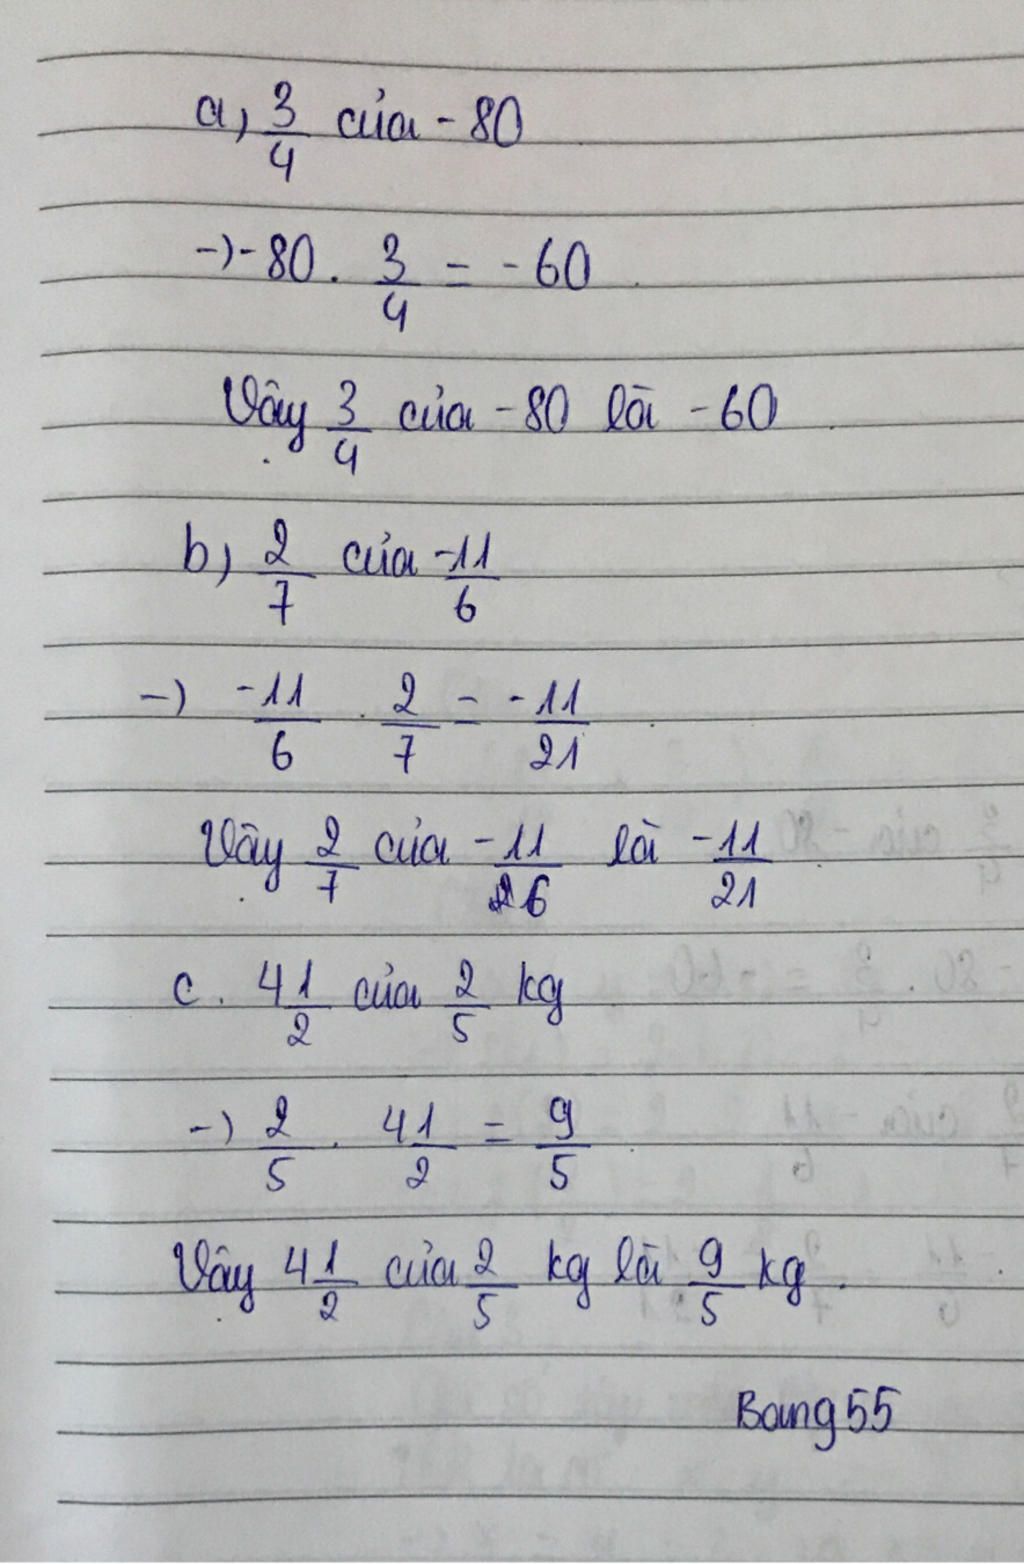 a, 3/4 của -80
-) -80 . 3/4 = -60
Vậy 3/4 của -80 là -60
b, 2/7 của -11/6
-) -11/6 . 2/7 = -11/21
Vậy 2/7 của -11/6 là -11/21
c. 4 1/2 của 2/5 kg
-) 2/5 . 4 1/2 = 9/5
Vậy 4 1/2 của 2/5 kg là 9/5 kg.
Bang55